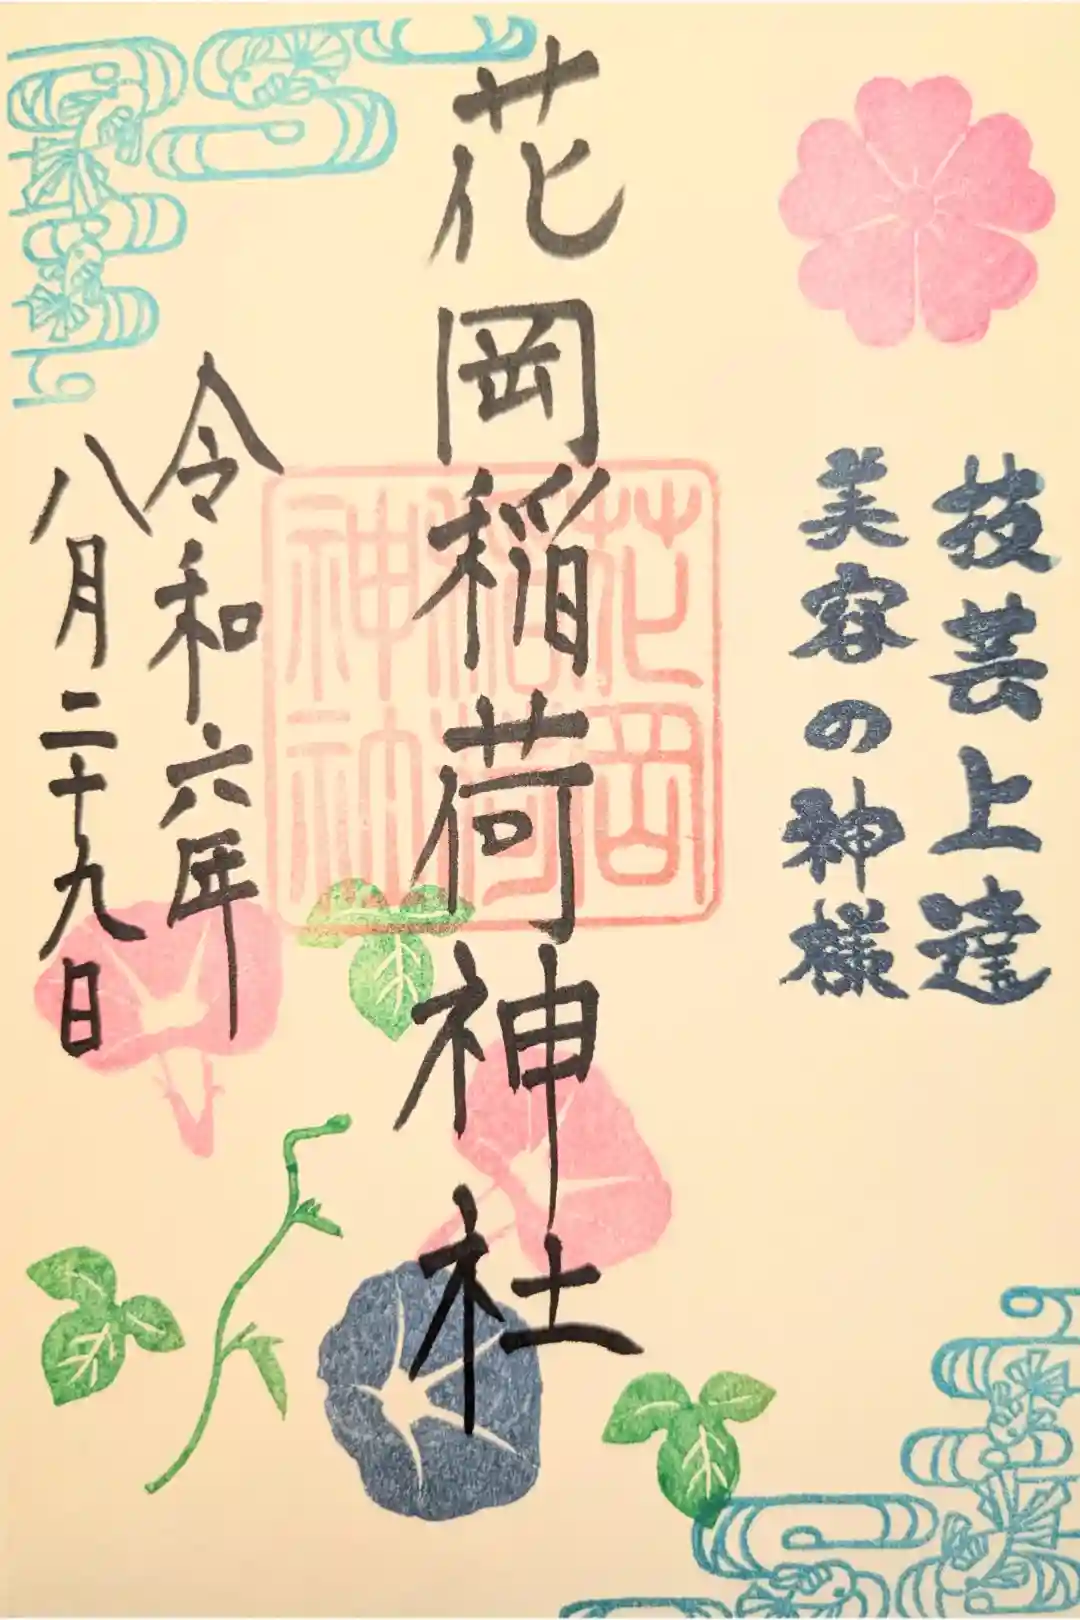 技芸上達
美容の神様
花岡稲荷神社
花岡
稲荷
神社
令和六年
八月二十九日